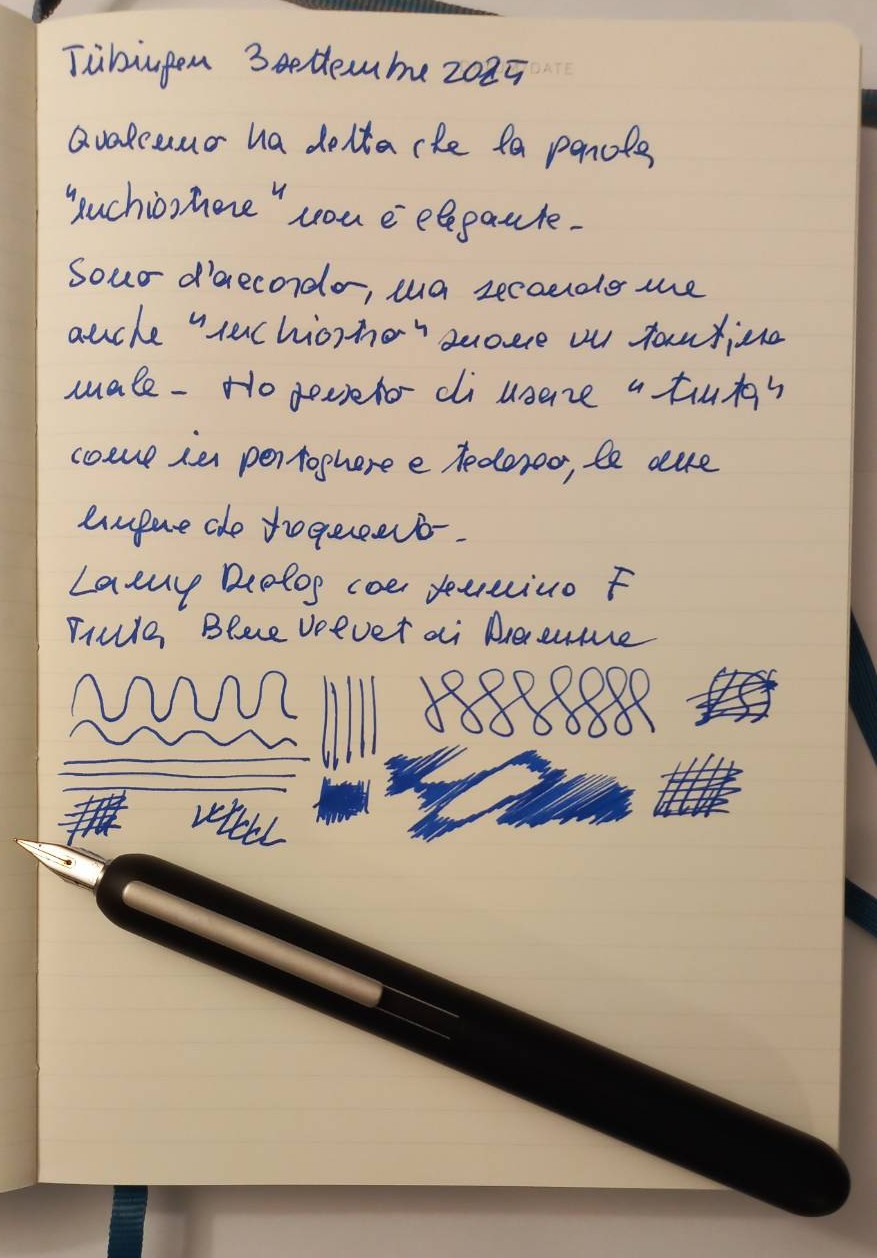 Tübingen 3 settembre 2024
DATE
Qualcuno ha detto che la parola
"inchiostrare" non è elegante-
Sono d'accordo, ma secondo me
anche "inchiostro" suona un tantino
male- Ho pensato di usare "tinta"
come in portoghese e tedesco, le due
lingue che frequento-
Lamy Dialog con pennino F
Tinta Blue Velvet di Diamine